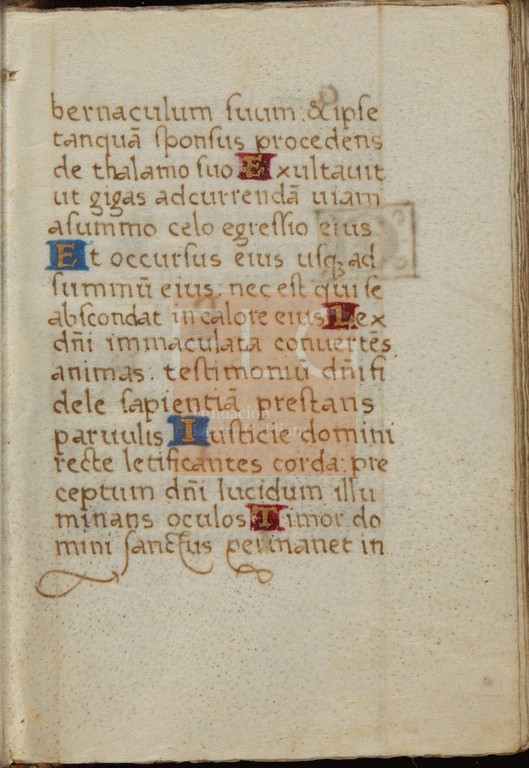 bernaculum suum. & ipse
tanquã sponsus procedens
de thalamo suo Exultauit
ut gigas adcurrendã uiam
asummo celo egressio eius
Et occursus eius usqȝ ad
summũ eius: nec est qui se
abscondat in calore eius Lex
dñi immaculata conuertẽs
animas. testimoniũ dñi fi
dele sapientiã prestans
paruulis Iusticie domini
recte letificantes corda: pre
ceptum dñi lucidum illu
minans oculos Timor do
mini sanctus permanet in